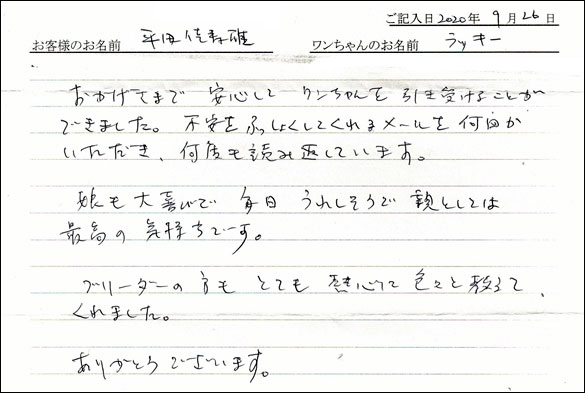 ご記入日2020年 9月26日
お客様のお名前 平田 ワンちゃんのお名前 ラッキー
おかげさまで 安心して ワンちゃんを 引き受けることが
できました。不安をふっしょくしてくれるメールを何回か
いただき、何度も読み返しています。
娘も大喜びで 毎日 うれしそうで 親としては
最高の気持ちです。
ブリーダーの方も とても 熱心に色々と教えて
くれました。
ありがとうございます。